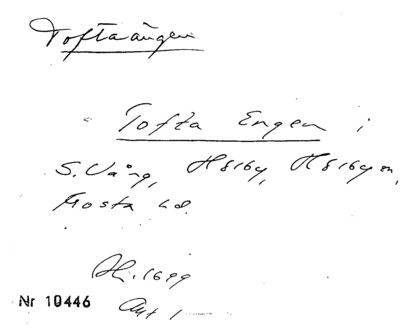 Toftaängen
" Tofta Engen i
S. Vång, Häsby, Häsby m,
Frosta hd.
1699
Nr 10446
Akt 1